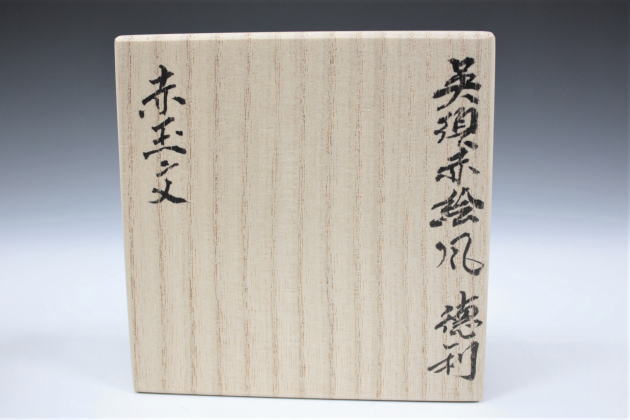 呉須赤絵風 徳利
赤玉文